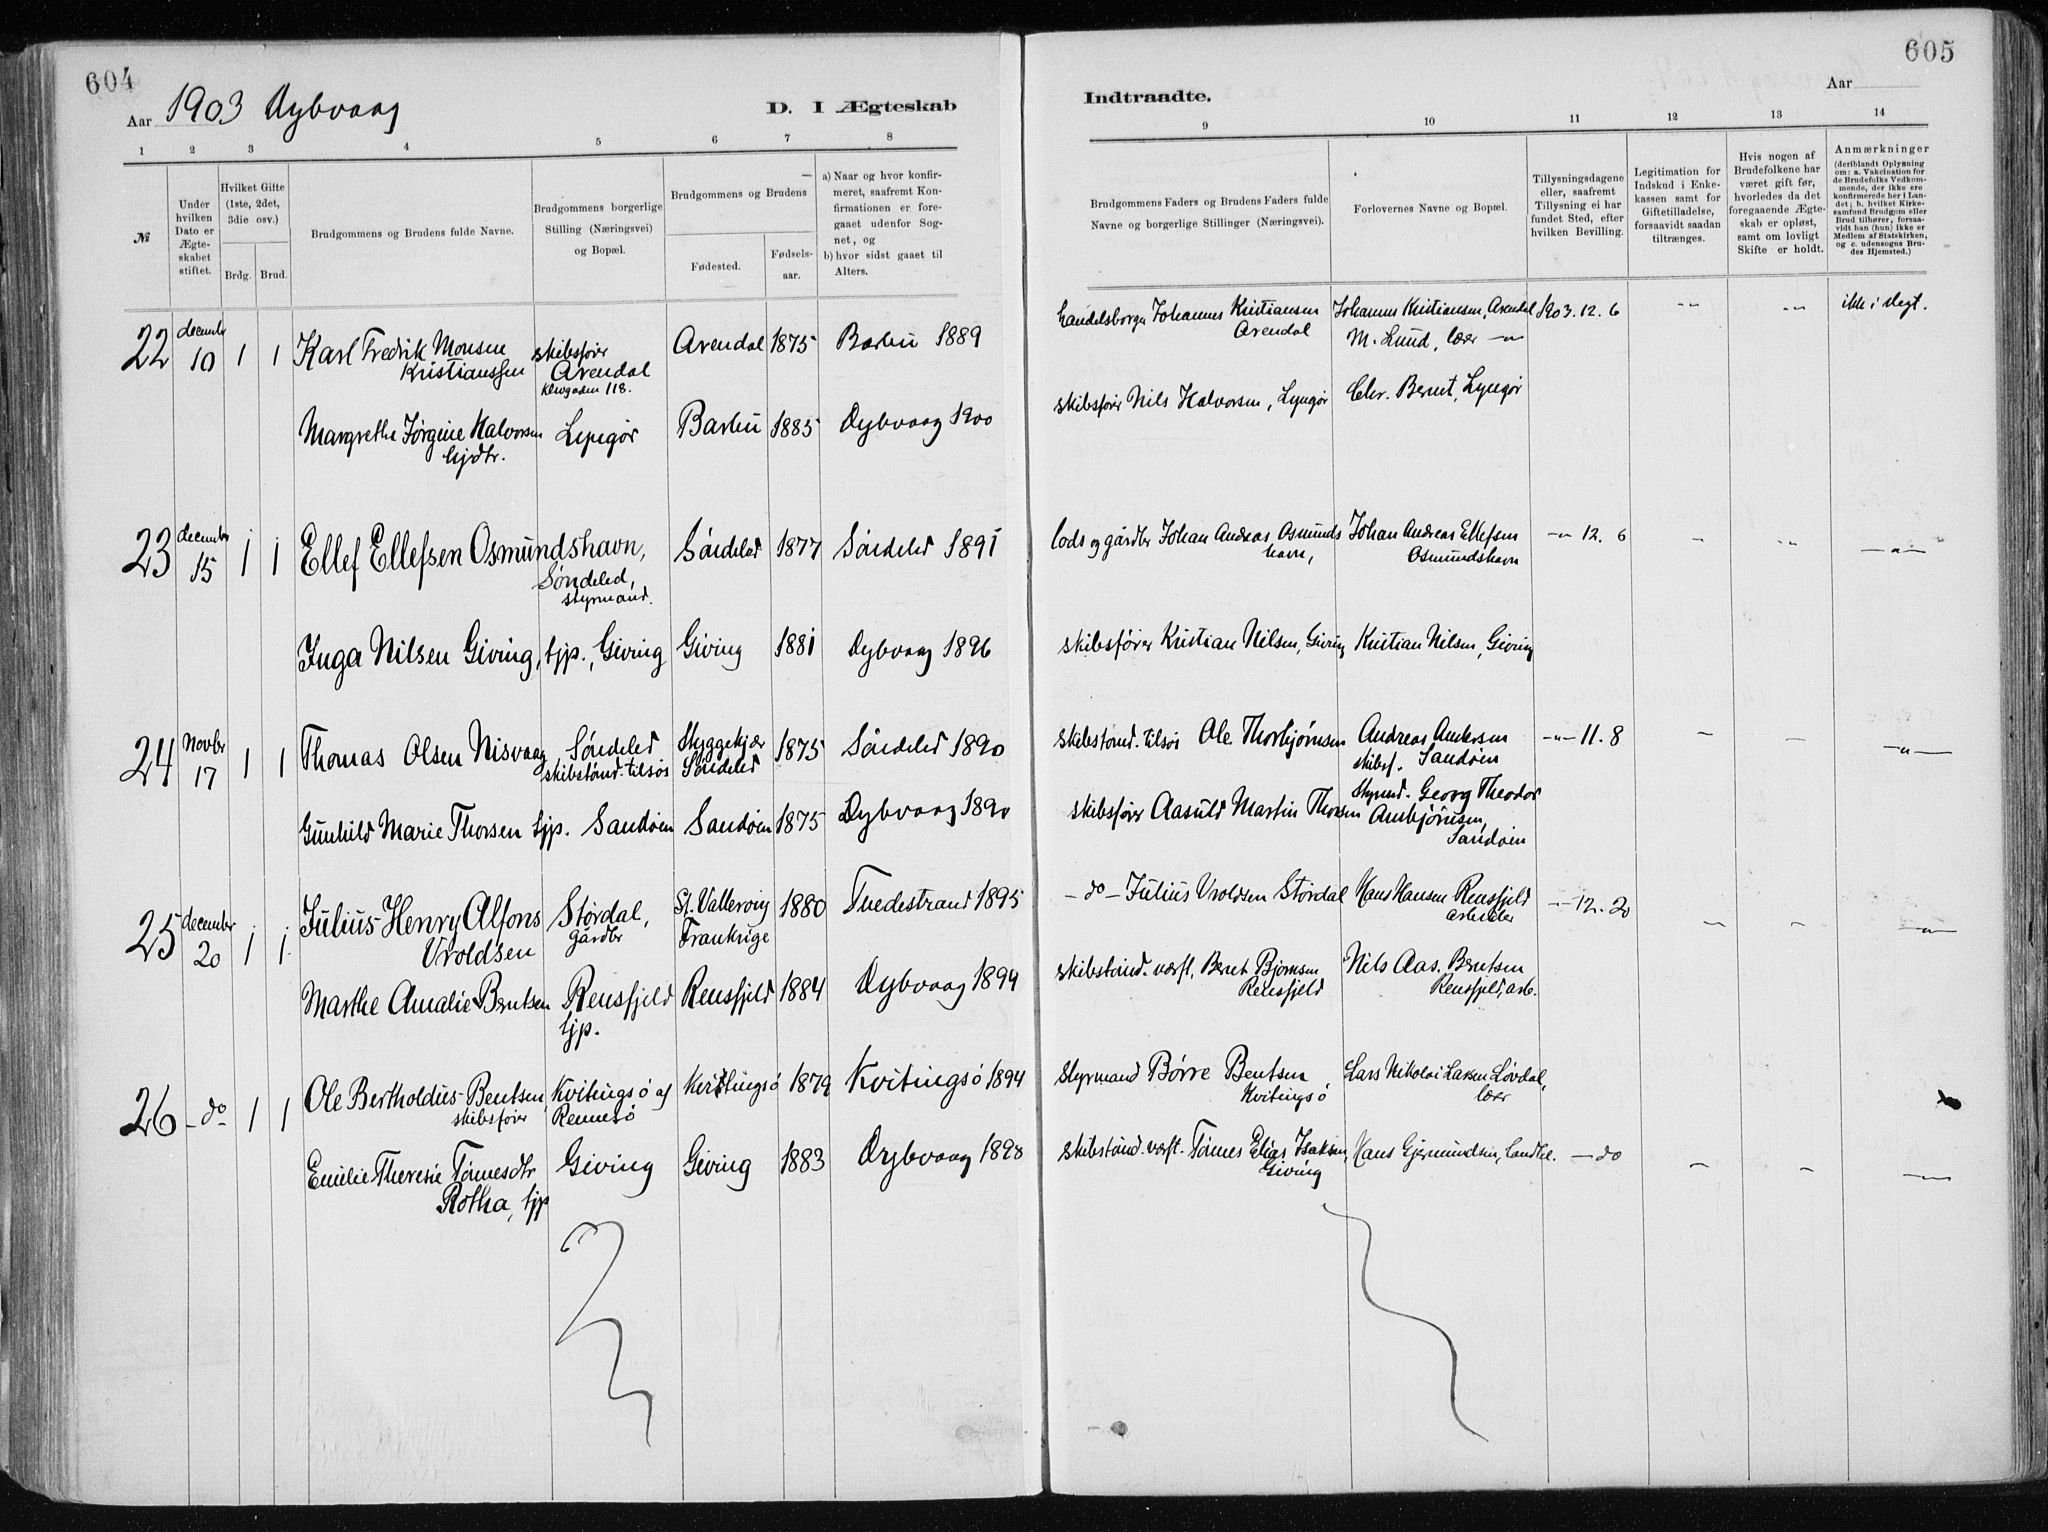 604
Aar 1903 Dybvaag
D. I Ægteskab
1 2 3 4 5 6 7 8
№
Under hvilken Dato er Ægteskabet stiftet.
Hvilket Gifte (1ste, 2det, 3die osv.)
Brdg. Brud.
Brudgommens og Brudens fulde Navne.
Brudgommens borgerlige Stilling (Næringsvei) og Bopæl.
Brudgommens og Brudens —
Fødested.
Fødsels-aar.
a) Naar og hvor konfirmeret, saafremt Konfirmationen er foregaaet udenfor Sognet, og
b) hvor sidst gaaet til Alters.
22 decembr 10 1 1 Karl Fredrik Monsen Kristianssen skibsfører Arendal 118. Arendal 1875 Barbu 1889
Margrethe Jørgine Halvorsen hjdtr. Lyngør Barbu 1885 Dybvaag 1900
23 december 15 1 1 Ellef Ellefsen Osmundshavn, Søndeled, styrmand. Søndeled 1877 Søndeled 1891
Inga Nilsen Giving, hjp., Giving Giving 1881 Dybvaag 1896
24 Novbr 17 1 1 Thomas Olsen Nisvaag Søndeled skibstømd. tilsøs Skyggekjær Søndeled 1875 Søndeled 1890
Gunhild Marie Thorsen hjp. Sandøen Sandøen 1875 Dybvaag 1890
25 december 20 1 1 Julius Henry Alfons Vroldsen Størdal, gårdbr St. Valleroy Frankrige 1880 Tvedestrand 1895
Marthe Amalie Berntsen Rensfjeld hjp. Rensfjeld 1884 Dybvaag 1894
26 — do — 1 1 Ole Bertholdius Bentsen skibsfører Kvitingsø af Rennesø Kvitingsø 1879 Kvitingsø 1894
Emilie Theresie Tømesdtr Rotha, hjp Giving Giving 1883 Dybvaag 1898
605
Indtraadte.
Aar
9 10 11 12 13 14
Brudgommens Faders og Brudens Faders fulde Navne og borgerlige Stillinger (Næringsvei).
Forlovernes Navne og Bopæl.
Tillysningsdagene eller, saafremt Tillysning ei har fundet Sted, efter hvilken Bevilling.
Legitimation for Indskud i Enkekassen samt for Giftetilladelse, forsaavidt saadan tiltrænges.
Hvis nogen af Brudefolkene har været gift før, hvorledes da det foregaaende Ægteskab er opløst, samt om lovligt Skifte er holdt.
Anmærkninger (deriblandt Oplysning om: a. Vakcination for de Brudefolks Vedkommende, der ikke ere konfirmerede her i Landet; b. hvilket Kirkesamfund Brudgom eller Brud tilhører, forsaavidt han (hun) ikke er Medlem af Statskirken, og c. udensogns Brudes Hjemsted.)
handelsborger Johannes Kristiansen Arendal Johannes Kristiansen, Arendal M. Lund, lær —"— 1903.12.6 —"— —"— ikke i slegt.
skibsfører Nils Halvorsen, Lyngør Chr. Bernt, Lyngør
lods og gårdbr Johan Andreas Osmundshavn, Johan Andreas Ellefsen Osmundshavn —"— 12. 6 — —"— —"—
skibsfører Kristian Nilsen, Giving Kristian Nilsen, Giving
skibstømd. tilsøs Ole Thorbjørnsen Andreas Andersen skibsf. Sandøen —"— 11. 8 — — —"—
skibsfører Aasuld Martin Thorsen Styrmd. Georg Theodor Ambjørnsen, Sandøen
— do — Julius Vroldsen Størdal Hans Hansen Rensfjeld arbeider —"— 12. 20 — — —"—
skibstømd. værft, Bernt Bjørnsen Rensfjeld Nils Aas. Berntsen Rensfjeld, arb.
Styrmand Børre Bentsen Kvitingsø Lars Nikolai Larsen Løvdal, lær
skibstømd. værft. Tømes Elias Isaksen, Giving Hans Gjermundsen, landhl. — do — — —"—